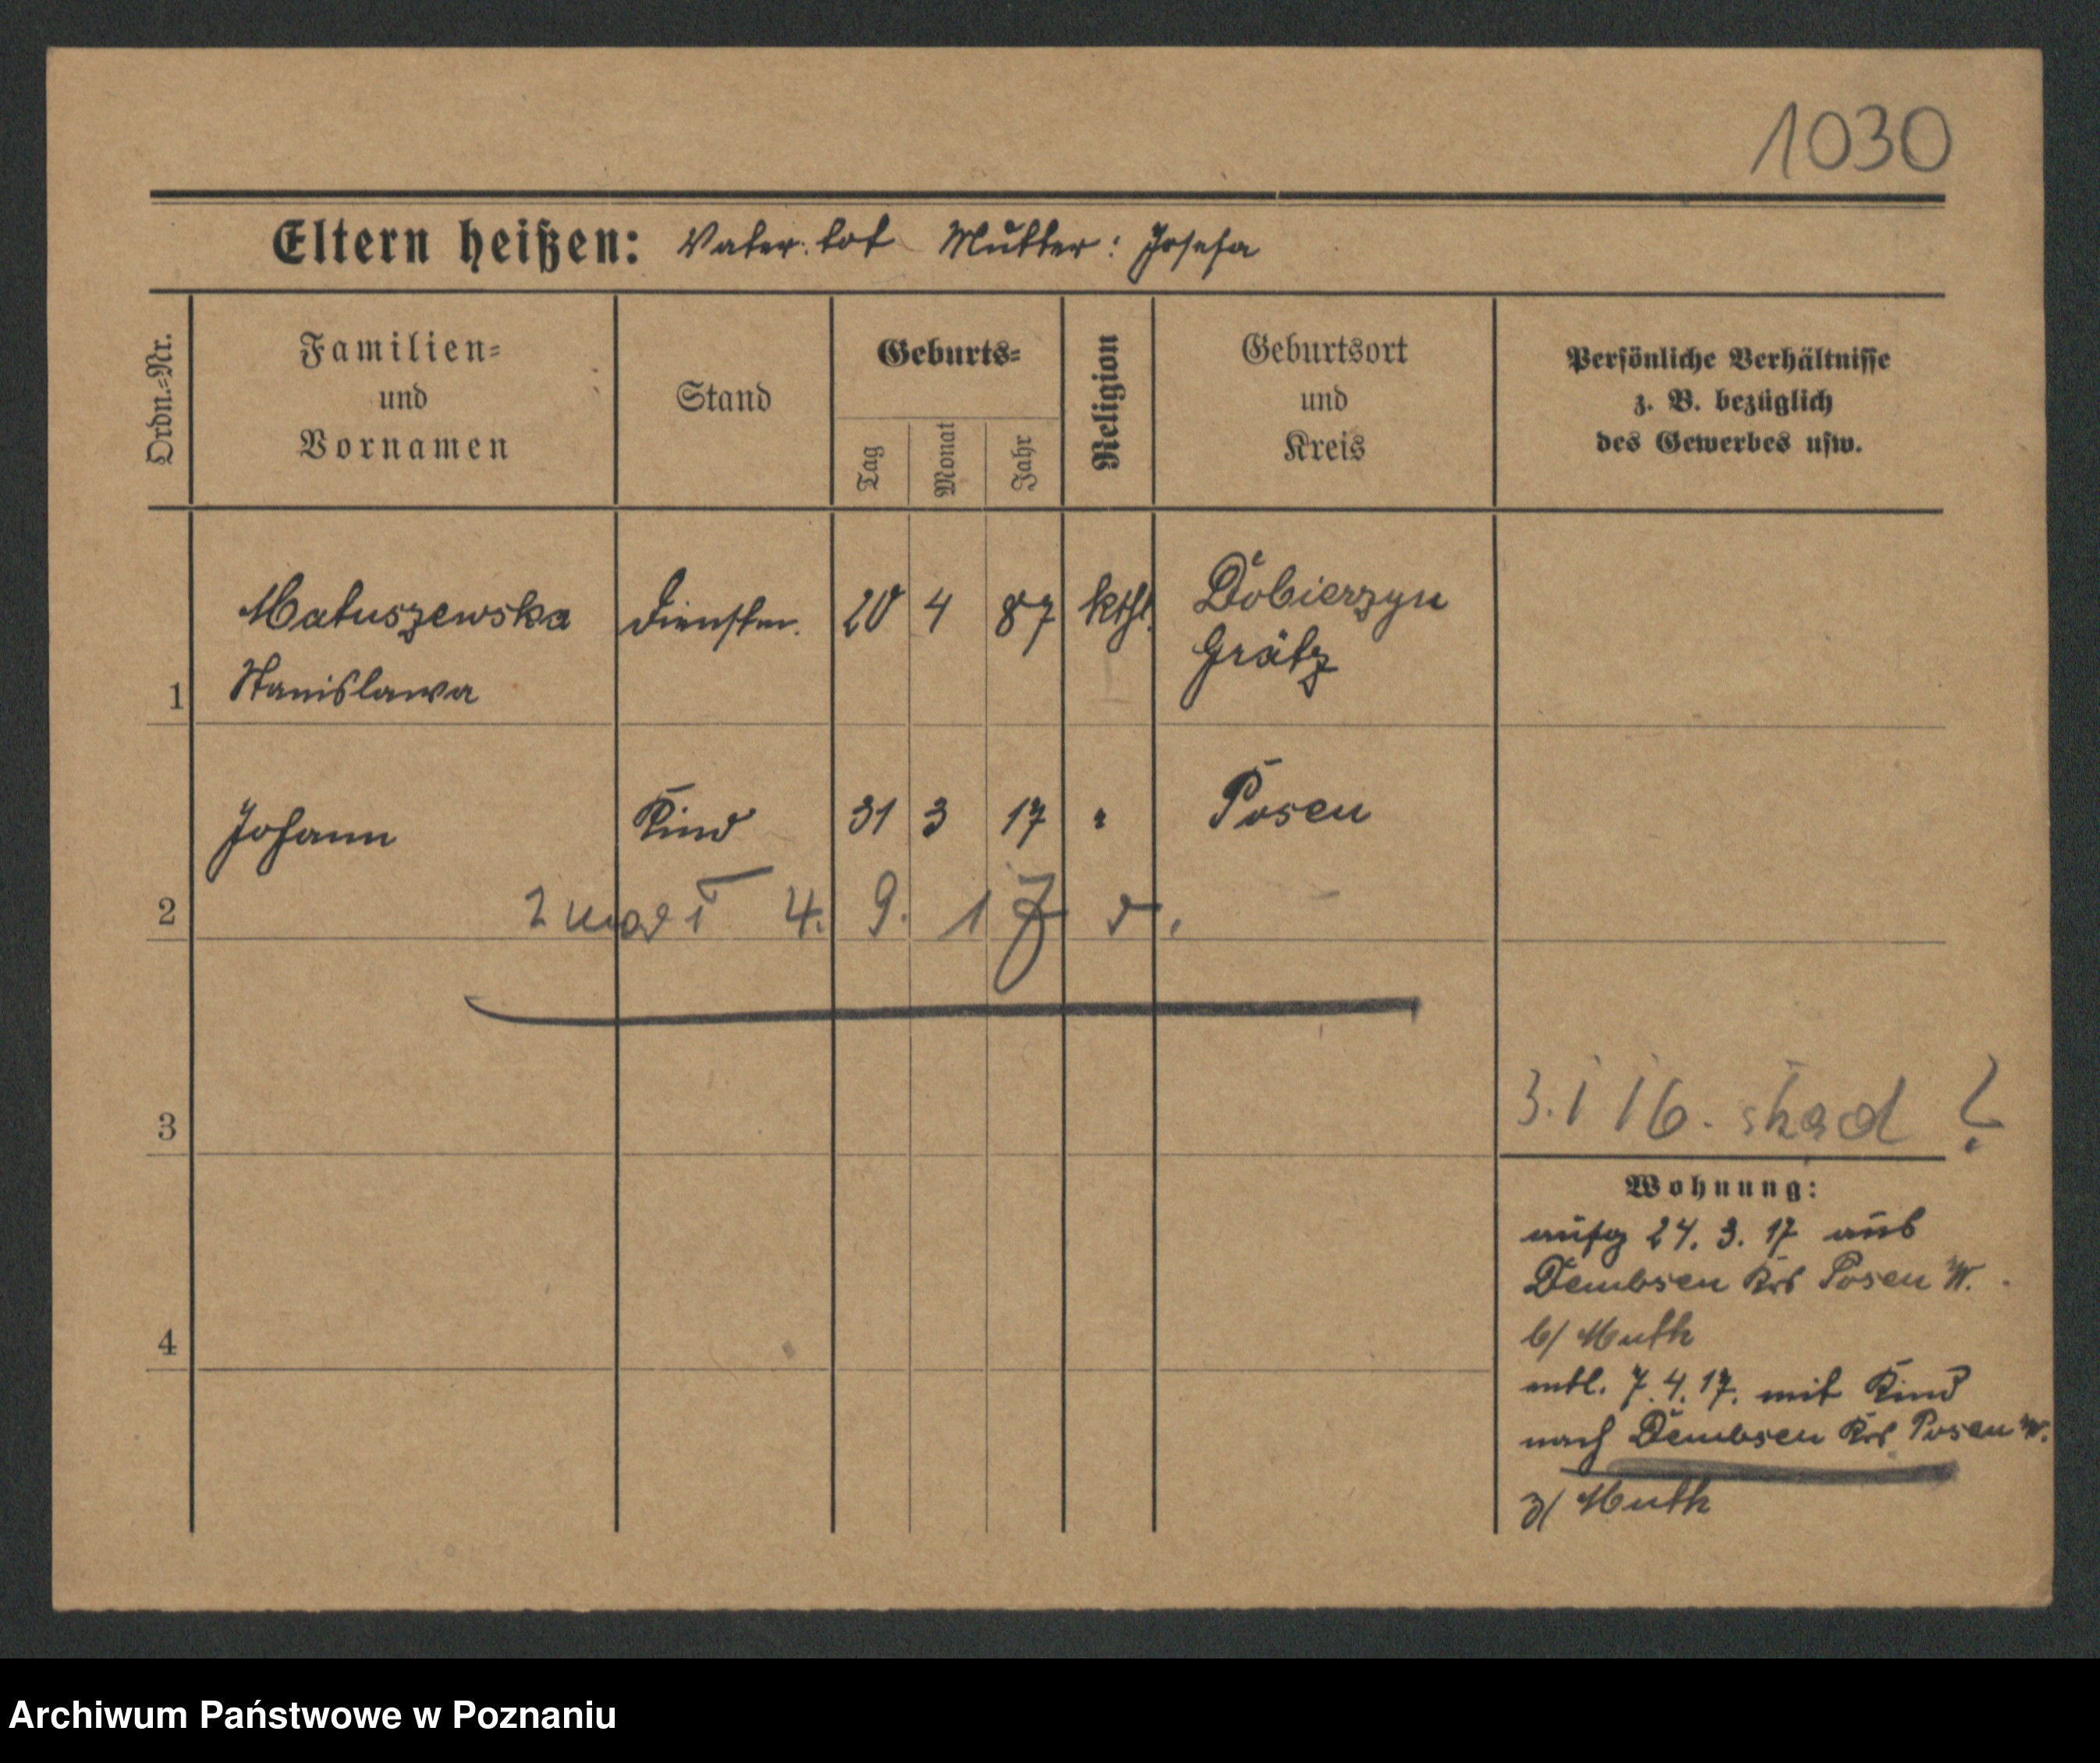 1030
Eltern heißen: Vater: tot Mutter: Josefa
Ordn.=Nr.
Familien=
und
Vornamen
Stand
Geburts=
Tag
Monat
Jahr
Religion
Geburtsort
und
Kreis
Persönliche Verhältnisse
z. B. bezüglich
des Gewerbes usw.
Matuszewska Dienstm. 20 4 87 kthl. Dobierzyn
Grätz
1 Stanislawa
Johann Kind 31 3 17 " Posen
2 4. 9. 17
3
3. 1 16.
Wohnung:
4
24. 3. 17 aus
Dembsen Krs Posen W.
b/ Muth
entl. 7.4.17. mit Kind
nach Dembsen Krs Posen W.
Muth
Archiwum Państwowe w Poznaniu